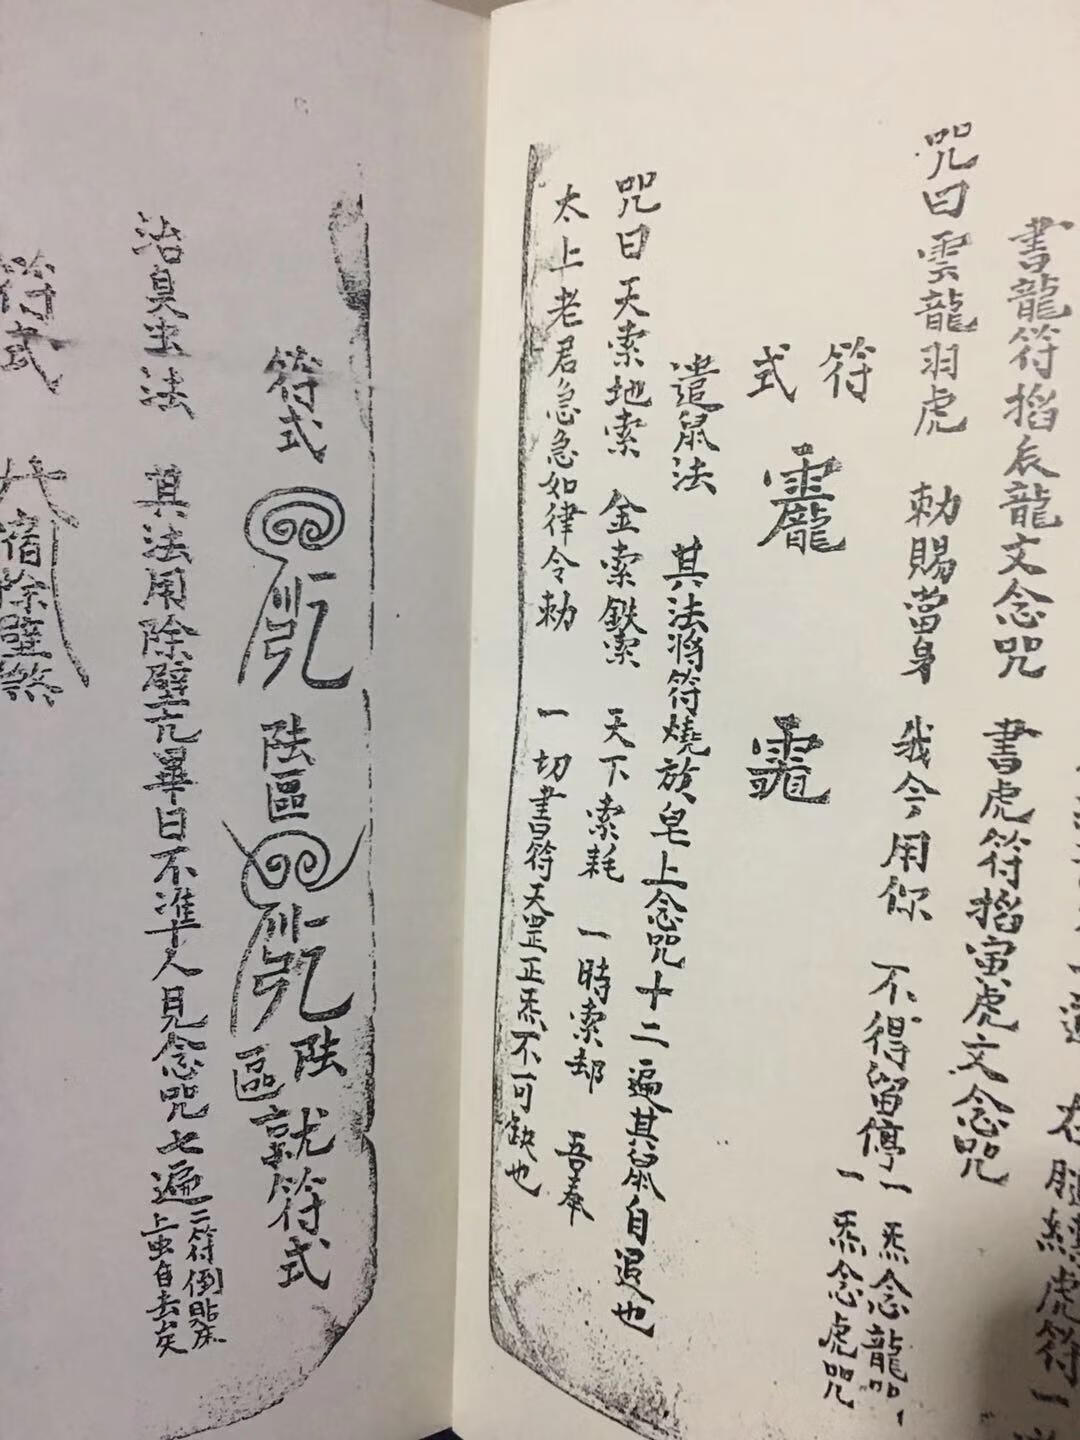 在腿經虎符一
書龍符掐辰龍文念咒 書虎符掐寅虎文念咒
咒曰雲龍羽虎 勅賜當身 我今用你 不得留停
一炁念龍咒
一炁念虎咒
符式
遣鼠法 其法將符燒放皂上念咒十二遍其鼠自退也
咒曰天索地索 金索鉄索 天下索耗 一時索却 吾奉
太上老君急急如律令勅 一切書符天罡正炁不可缺也
符式
區
區
就符式
治臭虫法 其法用除壁亢畢日不准十人見念咒七遍
二符倒貼床
上虫自去矣
符式
宿除壁煞